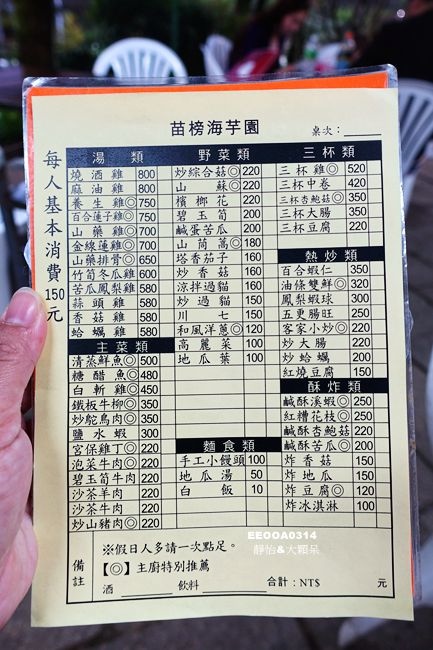 苗榜海芋園
桌次：
每人基本消費150元
湯類
燒酒雞 800
麻油雞 800
養生雞◎ 750
百合蓮子雞◎ 750
山藥雞◎ 700
金線蓮雞◎ 700
山藥排骨◎ 650
竹筍冬瓜雞 600
苦瓜鳳梨雞 580
蒜頭雞 580
香菇雞 580
蛤蠣雞 580
主菜類
清蒸鮮魚◎ 500
糖醋魚◎ 480
白斬雞◎ 450
鐵板牛柳◎ 350
炒鴕鳥肉◎ 350
鹽水蝦 300
宮保雞丁◎ 220
泡菜牛肉◎ 220
碧玉筍牛肉 220
沙茶羊肉 220
沙茶牛肉 220
炒山豬肉◎ 220
野菜類
炒綜合菇◎ 220
山蘇◎ 220
檳榔花 220
碧玉筍 200
鹹蛋苦瓜 200
山茼蒿◎ 180
塔香茄子 160
炒香菇 160
涼拌過貓 150
炒過貓 150
川七 150
和風洋蔥◎ 120
高麗菜 100
地瓜葉 100
麵食類
手工小饅頭 100
地瓜湯 50
白飯 10
三杯類
三杯雞◎ 520
三杯中卷 420
三杯杏鮑菇◎ 350
三杯大腸 350
三杯豆腐 220
熱炒類
百合蝦仁 350
油條雙鮮◎ 320
鳳梨蝦球 300
五更腸旺 250
客家小炒◎ 220
炒大腸 220
炒蛤蠣 200
紅燒豆腐 150
酥炸類
鹹酥溪蝦◎ 250
紅糟花枝◎ 250
鹹酥杏鮑菇 220
鹹酥苦瓜◎ 200
炸香菇 150
炸地瓜 150
炸豆腐◎ 120
炸冰淇淋 100
備註
※假日人多請一次點足。
【◎】主廚特別推薦
酒 飲料 合計：NT$ 元
EEOOA0314
靜怡&大顆呆